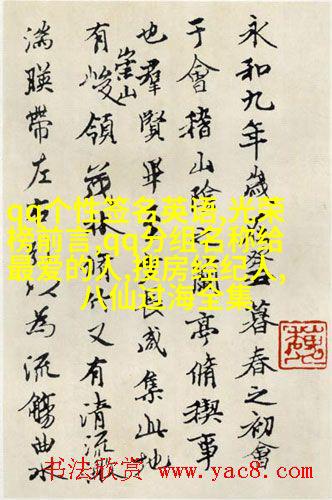 永和九年歲癸暮春之初會
于會稽山陰蘭亭脩禊事
也羣賢畢長咸集此地
有崇山峻領茂林又有清流激
湍暎帶左右以為流觴曲水
qq个性签名英语,光荣
榜前言,qq分组名称给
最爱的人,搜房经纪人,
八仙过海全集
书法欣赏 www.yac8.com